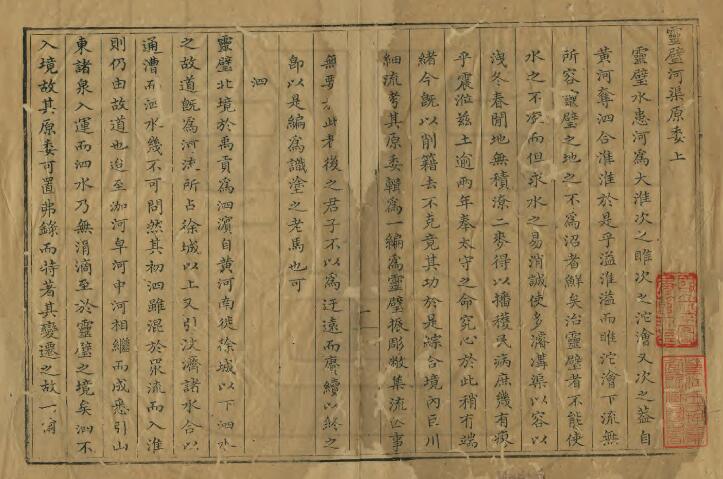 靈璧河渠原委上
靈璧水患河爲大淮次之睢次之沱澮又次之蓋自
黃河奪泗合淮淮於是乎溢淮溢而睢沱澮下流無
所容靈璧之地之不爲沼者鮮矣治靈璧者不能使
水之不來而但求水之易消誠使多濬溝渠以容以
洩冬春閒地無積潦二麥得以播穫民病庶幾有瘳
乎震涖茲土逾兩年奉太守之命究心於此稍有端
緒今旣以削籍去不克竟其功於是綜合境內巨川
細流考其原委輯爲一編爲靈璧振彫敝集流亡事
無要於此者後之君子不以爲迂遠而賡續以終之
卽以是編爲識塗之老馬也可
泗
靈璧北境於禹貢爲泗濱自黃河南徙徐城以下泗水
之故道旣爲河流所占徐城以上又引汶濟諸水合以
通漕而泗水幾不可問然其初泗雖混於眾流而入淮
則仍由故道也迨至泇河皁河中河相繼而成悉引山
東諸泉入運而泗水乃無涓滴至於靈璧之境矣泗不
入境故其原委可置弗錄而特著其變遷之故一